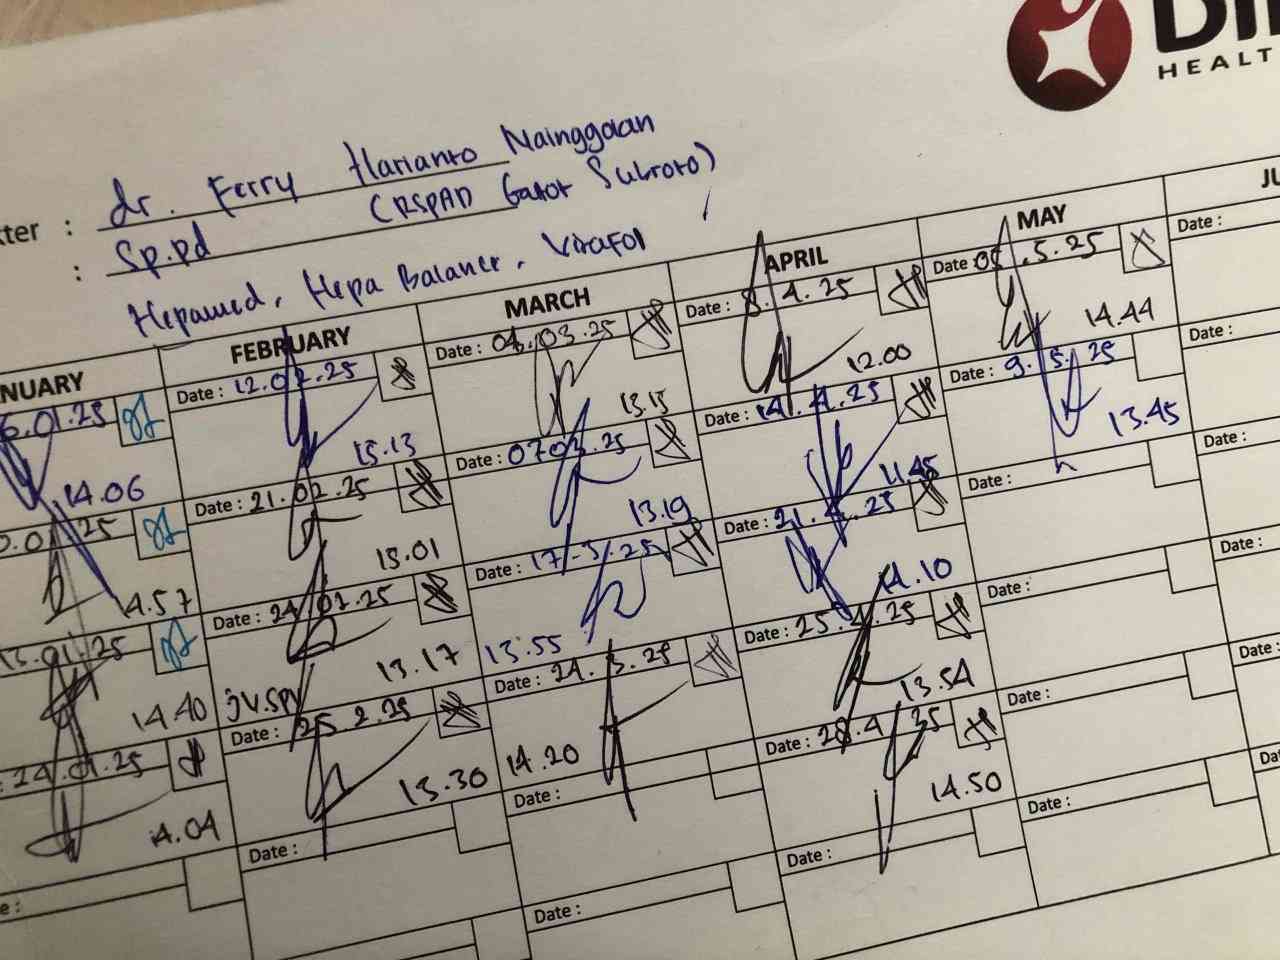 DI
HEALT
kter : dr. Ferry Harianto Nainggoan
: Sp.pd (RSPAD Gatot Subroto)
Hepamed, Hepa Balancer, Virafol
NUARY FEBRUARY MARCH APRIL MAY JU
6.01.25
14.06
25
4.57
13.01.25
14.40
24.01.25
14.04
e :
Date : 12.02.25
15.13
Date : 21.02.25
13.01
Date : 24.02.25
13.17
JV.SPV
Date : 25.2.25
13.30
Date :
Date : 04.03.25
13.15
Date : 07.03.25
13.19
Date : 17-3.25
13.55
Date : 24.3.25
14.20
Date :
Date :
Date : 8.4.25
12.00
Date : 14.4.25
11.45
Date : 21.4.25
14.10
Date : 25.4.25
13.54
Date : 28.4.25
14.50
Date :
Date : 05.5.25
14.44
Date : 9.5.25
13.45
Date :
Date :
Date :
Date :
Date :
Date :
Date :
Date :
Date :
Da